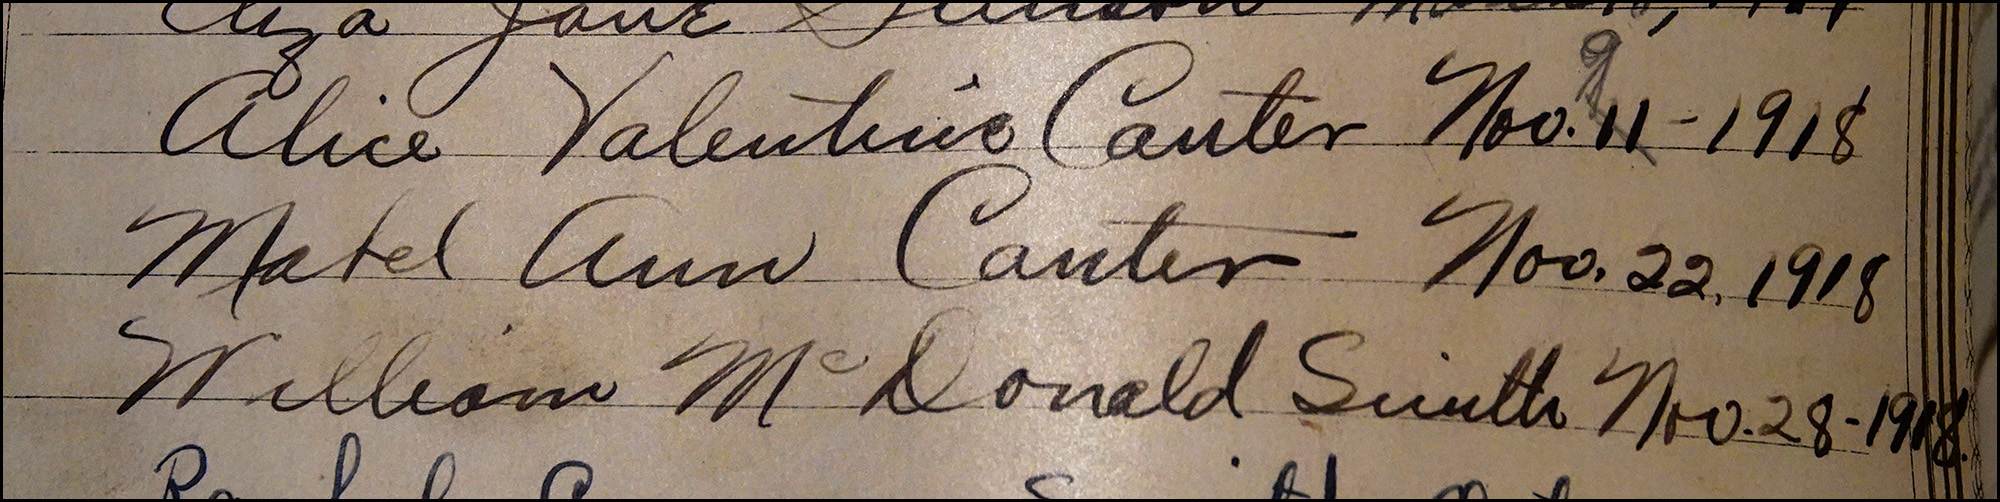 Eliza Jane
Alice Valentine Canter Nov. 9 11-1918
Mabel Ann Canter Nov. 22, 1918
William McDonald Smith Nov. 28-1918.